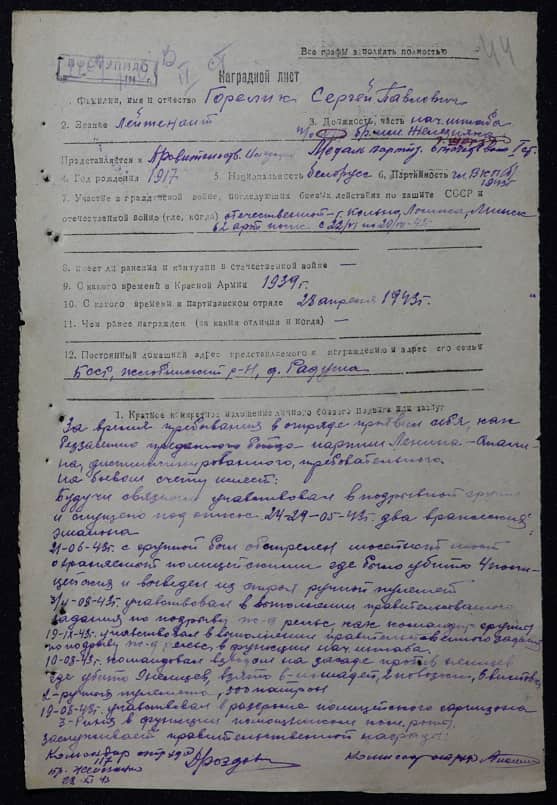 Все графы заполнять полностью
44
Наградной лист
1. Фамилия, имя и отчество Горелик Сергей Павлович
2. Звание Лейтенант 3. Должность, часть нач. штаба
Представляется к Медаль парту. I ст.
4. Год рождения 1917 5. Национальность белорусс 6. Партийность чл. ВКП(б)
7. Участие в гражданской войне, последующих боевых действиях по защите СССР и
отечественной войне (где, когда) отечественной - г. Минск
62 арт полк с 22/VI по
8. имеет ли ранения и контузии в отечественной войне —
9. С какого времени в Красной Армии 1939 г.
10. С какого времени в партизанском отряде 28 апреля 1943 г.
11. Чем ранее награжден (за какие отличия и когда) —
12. Постоянный домашний адрес представляемого к награждению и адрес его семьи
БССР, Жлобинский р-н, д. Радуша
1. Краткое конкретное изложение личного боевого подвига или заслуг
За время пребывания в отряде проявил себя, как
беззаветно преданного бойца партии Ленина-Стали-
на, дисциплинированного, требовательного.
На боевом счету имеет:
Будучи связным участвовал в подрывной группе
и спущено под откос 24-29-05-43г. два вражеских
эшелона
21-06-43г. с группой был обстрелян мост
охраняемой полицейскими где было убито 4 поли-
цейских и выведен из строя ручной пулемет
08-43г. участвовал в выполнении правительственного
задания по подрыву ж-д рельс, как командир группы
19-IX-43г. участвовал в выполнении правительственного задания
по подрыву ж-д рельс, в функции нач. штаба.
10-08-43г. командовал взводом на засаде против немцев
где убито 9 немцев, взято 6 лошадей, 2 повозки, 5 винтовок
ручного пулемета, 300 патрон
19-08-43г. участвовал в разгроме полицейского гарнизона
в функции помощником ком. роты.
заслуживает правительственной награды:
Командир отряда Дроздов Комиссар отряда
117